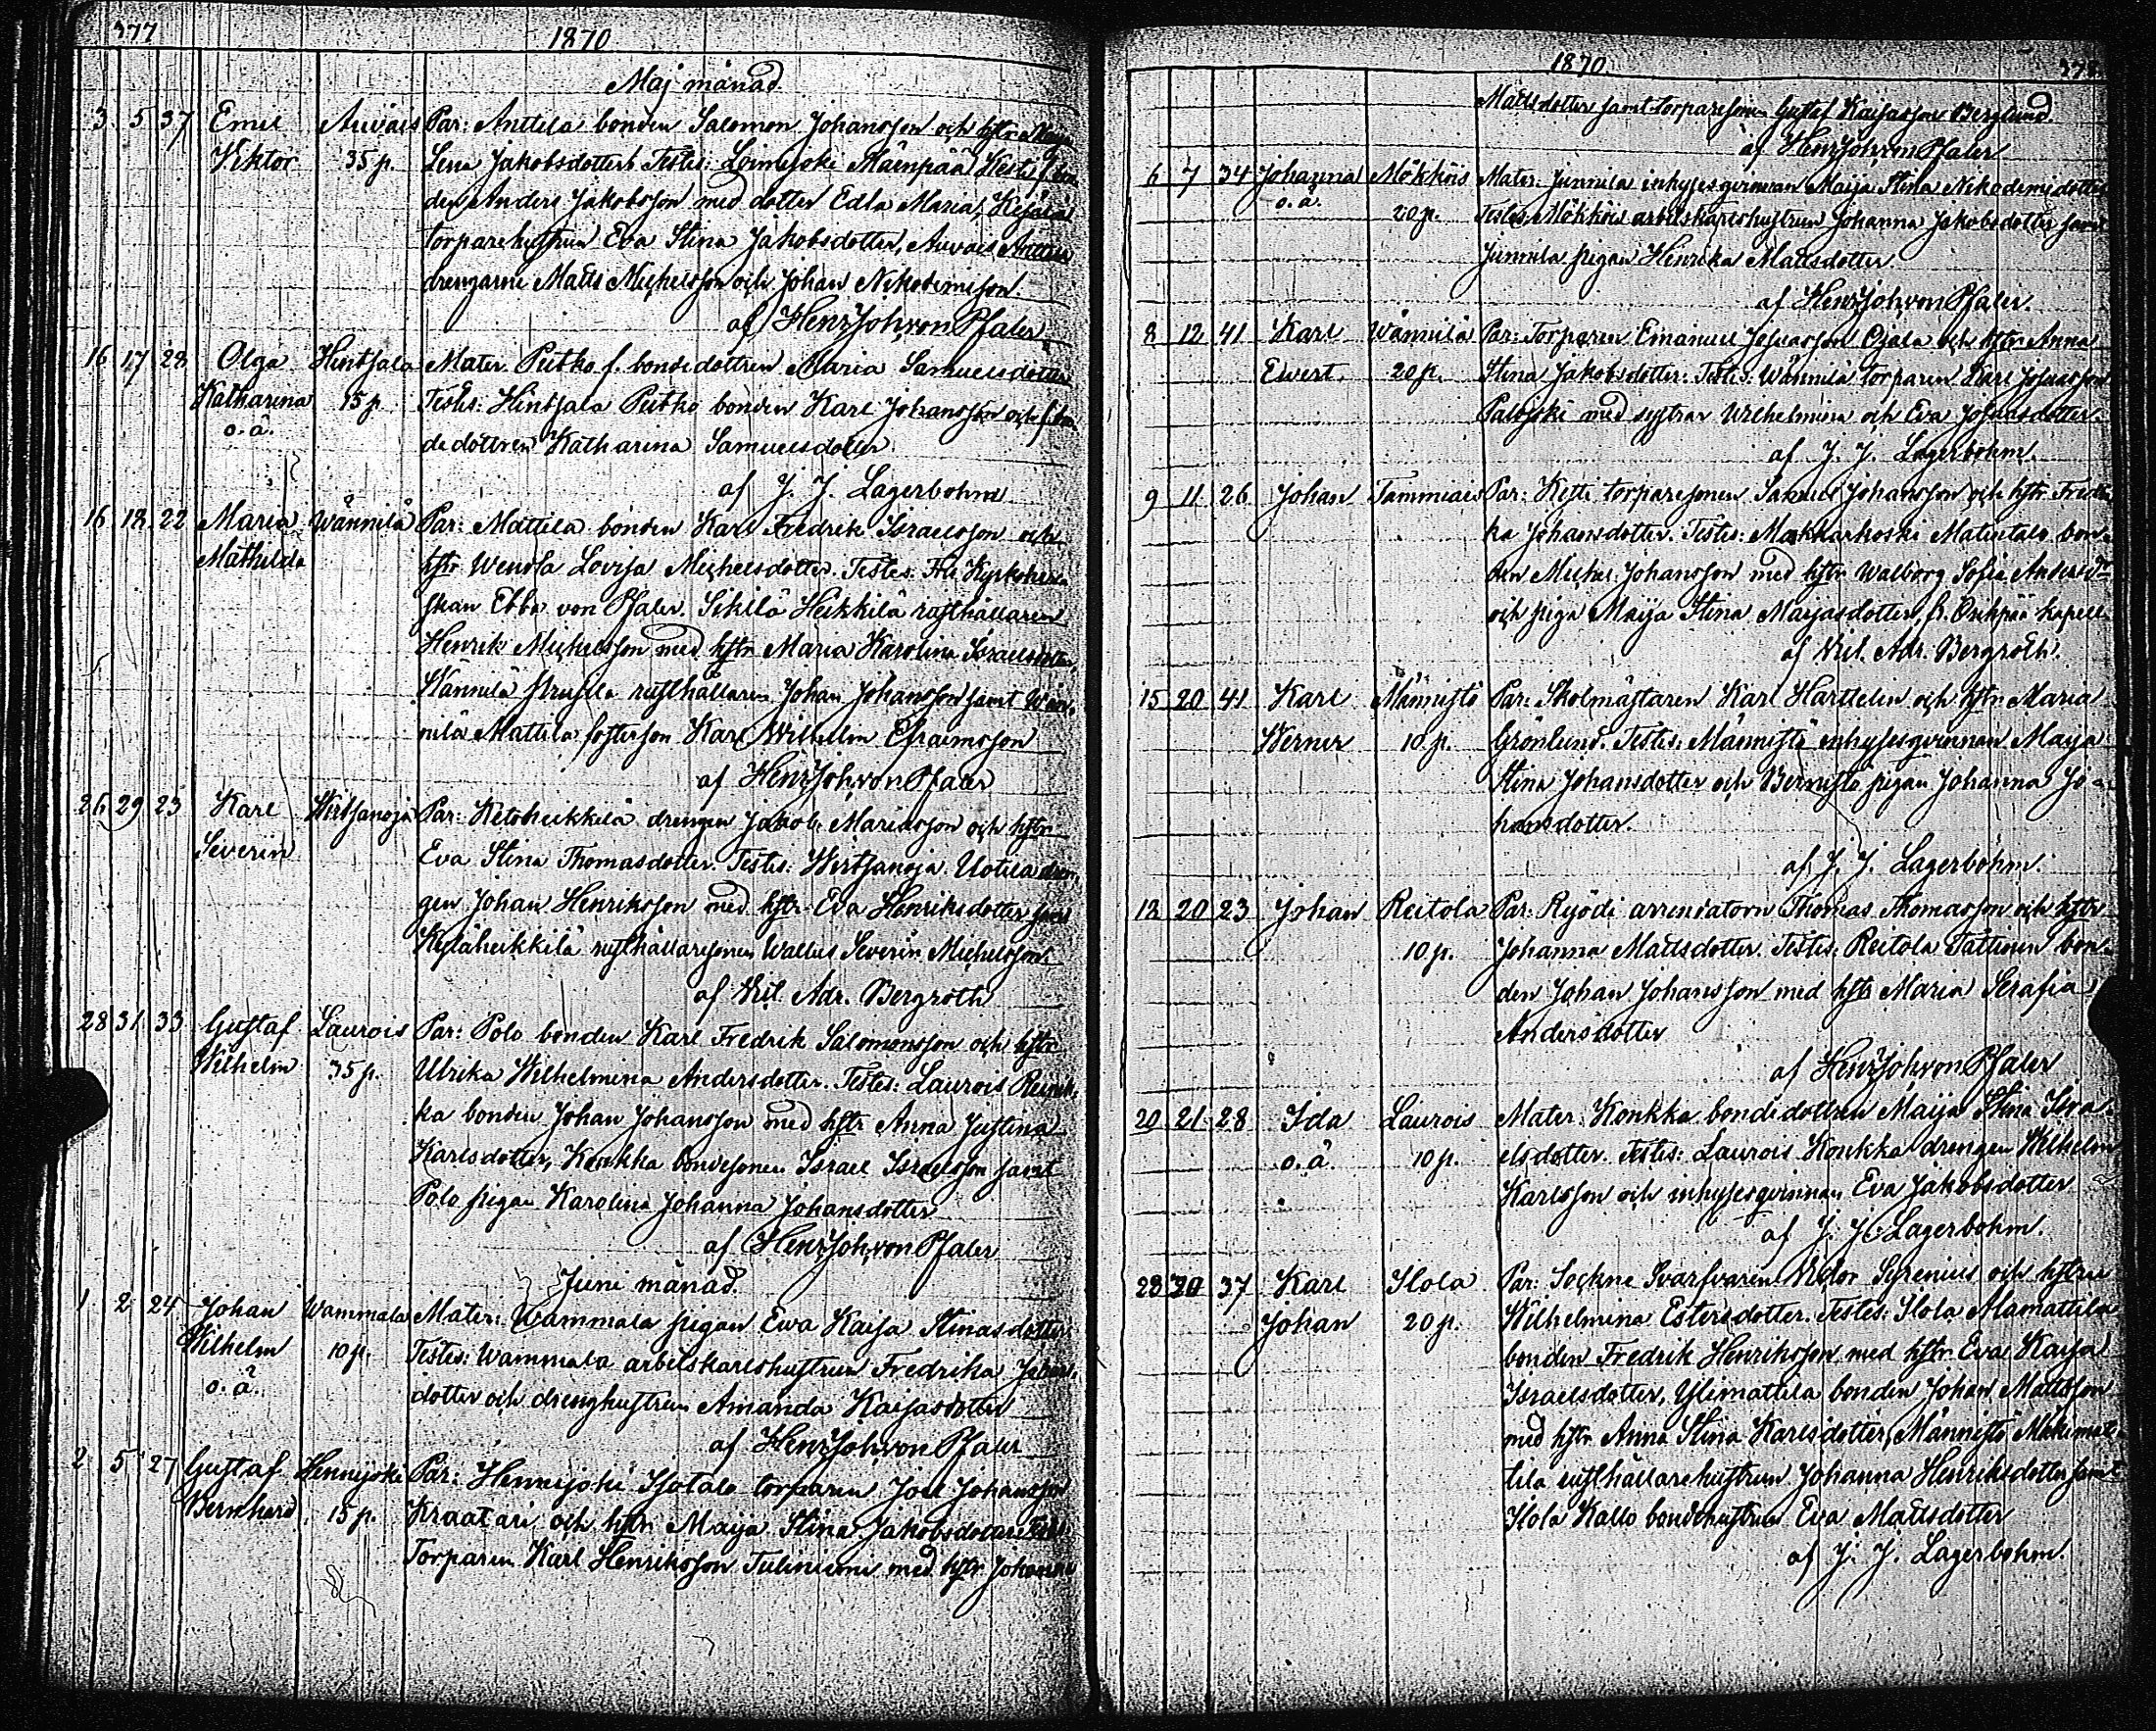 377 1870
Maj månad
3 5 37 Emil Auvais Par: Anttila bonden Salomon Johansson och hstr Maja
Viktor 35 p. Lena Jakobsdotter. Testes: Loimijoki Mäenpää
den Anders Jakobsson med dotter Edla Maria,
torparehustrun Eva Stina Jakobsdotter, Auvais Anttila
drengarne Matts Michelsson och Johan Nikodemisson.
af Henr Joh von Pfaler.
16 17 28 Olga Hintsala Mater Peitko f. bondedottren Maria Samuelsdotter
Katharina 15 p. Testes: Hintsala Peitko bonden Karl Johansson och f. bon
o. ä. dedottren Katharina Samuelsdotter.
af J. J. Lagerbohm
16 18 22 Maria Wännilä Par: Mattila bonden Karl Fredrik Israelsson och
Mathilda hstr Wendla Lovisa Michelsdotter. Testes: Fru Kyrkoher
skan Ebba von Pfaler. Sikilä Heikkilä rusthållaren
Henrik Michelsson med hstr Maria Karolina Israelsdotter,
Wännilä rusthållaren Johan Johansson samt Wän-
nilä Mattila fosterson Karl Wilhelm Efraimsson
af Henr Joh von Pfaler
26 29 23 Karl Wirtsanoja Par: Ketoheikkilä drengen Jakob Mariasson och hstr
Severin Eva Stina Thomasdotter. Testes: Wirtsanoja Uotila dren-
gen Johan Henriksson med hstr Eva Henriksdotter samt
Kyläheikkilä rusthållaresonen Wallus Severin Michelsson.
af Vil. Adr. Bergroth
28 31 33 Gustaf Laurois Par: Polo bonden Karl Fredrik Salomonsson och hstr
Wilhelm 35 p. Ulrika Wilhelmina Andersdotter. Testes: Laurois
ka bonden Johan Johansson med hstr Anna Justina
Karlsdotter, Konkka bondesonen Israel Israelsson samt
Polo pigan Karolina Johanna Johansdotter
af Henr Joh von Pfaler
Juni månad.
1 2 24 Johan Wammala Mater: Wammala pigan Ewa Kaisa Stinasdotter
Wilhelm 10 p. Testes: Wammala arbetskarlshustrun Fredrika
o. ä. dotter och drenghustrun Amanda Kaisasdotter
af Henr Joh von Pfaler
2 5 27 Gustaf Hennijoki Par: Hennijoki Isotalo torparen Joel Johansson
Bernhard 15 p. Kraatari och hstr Maija Stina Jakobsdotter
Torparen Karl Henriksson Tuliniemi med hstr Johanna
1870 378
Mattsdotter samt torparesonen Gustaf Kaisasson Berglund.
af Henr Joh von Pfaler
6 7 34 Johanna Mökköis Mater: Junnila inhysesqvinnan Maija Stina Nikodemidotter
o. ä. 20 p. Testes: Mökköis arbetskarlshustrun Johanna Jakobsdotter samt
Junnila pigan Henrika Mattsdotter.
af Henr Joh von Pfaler.
8 12 41 Karl Wännilä Par: Torparen Emanuel Josuasson Ojala och hstr Anna
Ewert. 20 p. Stina Jakobsdotter. Testes: Wännilä torparen Karl Josuasson
Palojoki med systrar Wilhelmina och Eva Josuasdotter.
af J. J. Lagerbohm.
9 11 26 Johan Tammiais Par: Ketti torparesonen Samuel Johansson och hstr Fredri
ka Johansdotter. Testes: Makkarkoski Matintalo bon-
den Michel Johansson med hstr Walborg Sofia Anders dr
och piga Maija Stina Marjasdotter, fr. Oripää kapell.
af Vil. Adr. Bergroth.
15 20 41 Karl Männistö Par: Skolmästaren Karl Harttelin och hstr Maria
Werner 10 p. Grönlund. Testes: Männistö inhysesqvinnan Maija
Stina Johansdotter och pigan Johanna Jo-
hansdotter.
af J. J. Lagerbohm.
12 20 23 Johan Reitola Par: Ryödi arrendatorn Thomas Thomasson och hstr
10 p. Johanna Mattsdotter. Testes: Reitola Tattinen bon-
den Johan Johansson med hstr Maria Serafia
Andersdotter
af Henr Joh von Pfaler
20 21 28 Ida Laurois Mater: Konkka bondedottren Maija Stina Isra-
o. ä. 10 p. elsdotter. Testes: Laurois Konkka drengen Wilhelm
Karlsson och inhysesqvinnan Eva Jakobsdotter
af J. J. Lagerbohm.
28 30 37 Karl Ilola Par: Sockne Svarfvaren Victor Syrenius och hstru
Johan 20 p. Wilhelmina Estersdotter. Testes: Ilola Alamattila
bonden Fredrik Henriksson med hstr Eva Kaisa
Israelsdotter, Ylimattila bonden Johan Mattsson
med hstr Anna Stina Karlsdotter, Männistö Mäkimat-
tila rusthållarehustrun Johanna Henriksdotter samt
Ilola Kallo bondehustrun Eva Mattsdotter
af J. J. Lagerbohm.